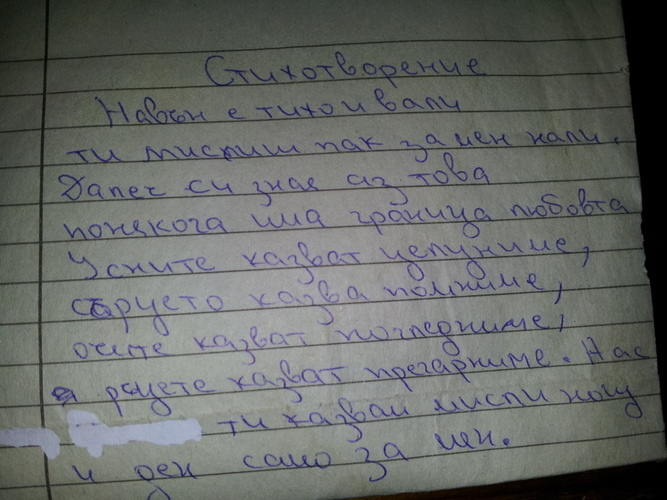 Стихотворение
Навън е тихо и вали
ти мислиш пак за мен нали.
Далеч си зная аз това
понякога има граница любовта
Усните казват целуниме,
сърцето казва помниме,
очите казват погледниме,
а ръцете казват прегарниме. Аас
ти казвам мисли нощу
и ден само за мен.